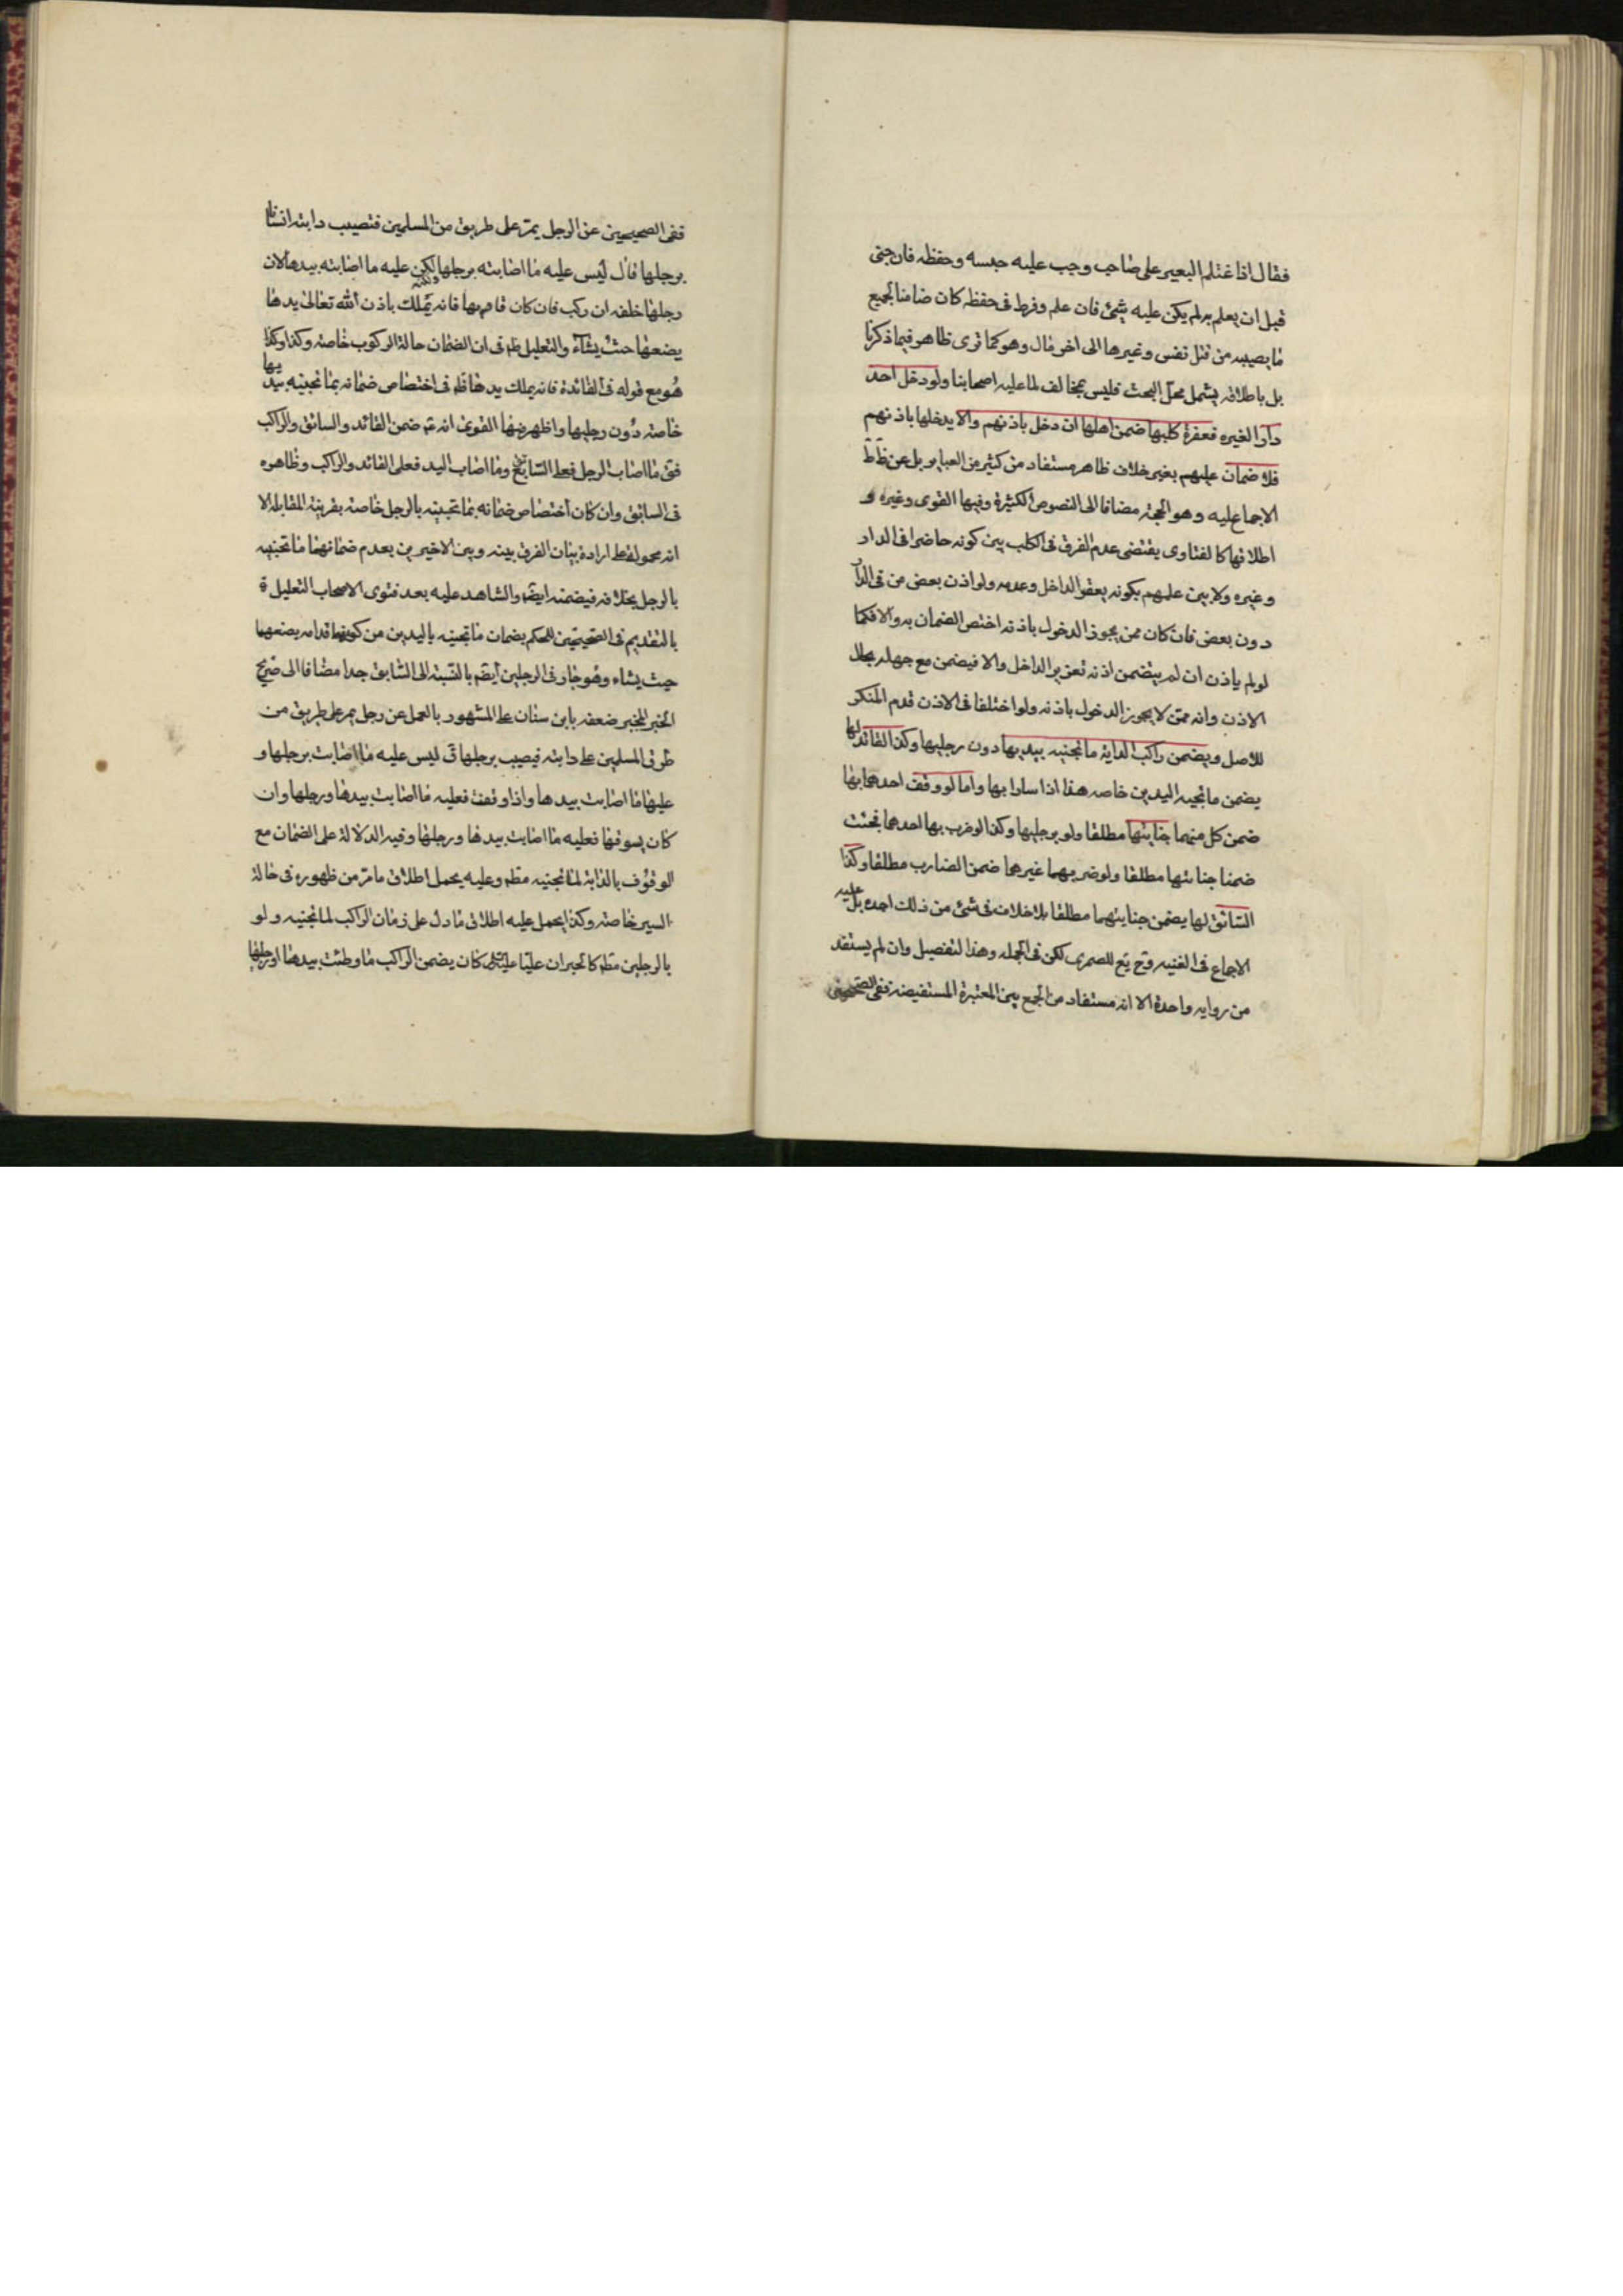 فقال اذا غتلم البعير على صاحب وجب عليه حبسه وحفظه فان جنى
قبل ان يعلم به لم يكن عليه شئ فان علم وفرط فى حفظه كان ضامنا لجميع
ما يصيبه من قتل نفس وغيرها الى اخر ما قال وهو كما ترى ظاهر فيما ذكرنا
بل باطلاقه يشمل محل البحث فليس بمخالف لما عليه اصحابنا ولو دخل احد
دار الغيره فعقره كلبها ضمن اهلها ان دخل باذنهم والا يدخلها باذنهم
فلا ضمان عليهم بغير خلاف ظاهر مستفاد من كثير من العباير بل عن ظ ط
الاجماع عليه وهو الحجة مضافا الى النصوص الكثيرة وفيها القوى وغيره و
اطلاقها كالفتاوى يقتضى عدم الفرق فى الكلب بين كونه حاضرا فى الدار
وغيره ولا بين علمهم بكونه يعقر الداخل وعدمه ولو اذن بعض من فى الدار
دون بعض فان كان ممن يجوز الدخول باذنه اختص الضمان به والا فكما
لو لم ياذن ان لم يتضمن اذنه تعزير الداخل والا فيضمن مع جهله بحال
الاذن وانه ممن لا يجوز الدخول باذنه ولو اختلفا فى الاذن قدم المنكر
للاصل ويضمن راكب الدابة ما تجنيه بيديها دون رجليها وكذا القائد لها
يضمن ما تجنيه اليدين خاصه هذا اذا سارا بها واما لو وقف احدهما بها
ضمن كل منهما جنايتها مطلقا ولو برجليها وكذا لو ضرب بها احدهما فجنت
ضمنا جنايتها مطلقا ولو ضربهما غيرهما ضمن الضارب مطلقا وكذا
السائق لها يضمن جنايتهما مطلقا بلا خلاف فى شئ من ذلك اجده بل عليه
الاجماع فى الغنيه وح يع للصمرى لكن فى الجمله وهذا التفصيل وان لم يستفد
من روايه واحدة الا انه مستفاد من الجمع بين المعتبرة المستفيضه ففى الصحيحين
ففى الصحيحين عن الرجل يمر على طريق من المسلمين فتصيب دابته انسانا
برجلها قال ليس عليه ما اصابته برجلها ولكن عليه ما اصابته بيدها لان
رجلها خلفه ان ركب فان كان قادبها فانه يملك باذن الله تعالى يدها
يضعها حيث يشاء والتعليل ظم فى ان الضمان حالة الركوب خاصة وكذا وكذا
هو مع قوله فى القائدة فانه يملك يدها ظم فى اختصاص ضمانه بما تجنيه بيديها
خاصة دون رجليها واظهر منها القوى انه ع ضمن القائد والسائق والراكب
فقى ما اصاب الرجل فعلى السائق وما اصاب اليد فعلى القائد والراكب وظاهره
فى السائق وان كان اختصاص ضمانه بما تجنيته بالرجل خاصة بقرينة المقابلة الا
انه محمول على ارادة بيان الفرق بينه وبين الاخيرين بعدم ضمانهما ما تجنيه
بالرجل بخلافه فيضمنه ايضم والشاهد عليه بعد فتوى الاصحاب التعليل فى
بالتقديم فى الصحيحين للحكم بضمان ما تجنيه باليدين من كونهما قدامه يضعهما
حيث يشاء وهو جار فى الرجلين ايضم بالنسبة الى السابق جدا مضافا الى صريح
الخبر المخبر ضعفه بابن سنان على المشهور بالعمل عن رجل يمر على طريق من
طرق المسلمين على دابته فيصيب برجلها ق ليس عليه ما اصابت برجلها و
عليها ما اصابت بيدها واذا وقفت فعليه ما اصابت بيدها ورجلها وان
كان يسوقها فعليه ما اصابت بيدها ورجلها وفيه الدلالة على الضمان مع
الوقوف بالدابة لما تجنيه مطم وعليه يحمل اطلاق ما مر من ظهوره فى حالة
السير خاصة وكذا يحمل عليه اطلاق ما دل على زمان الراكب لما تجنيه ولو
بالرجلين مطم كالخبر ان عليا كان يضمن الراكب ما وطئت بيدها او رجلها